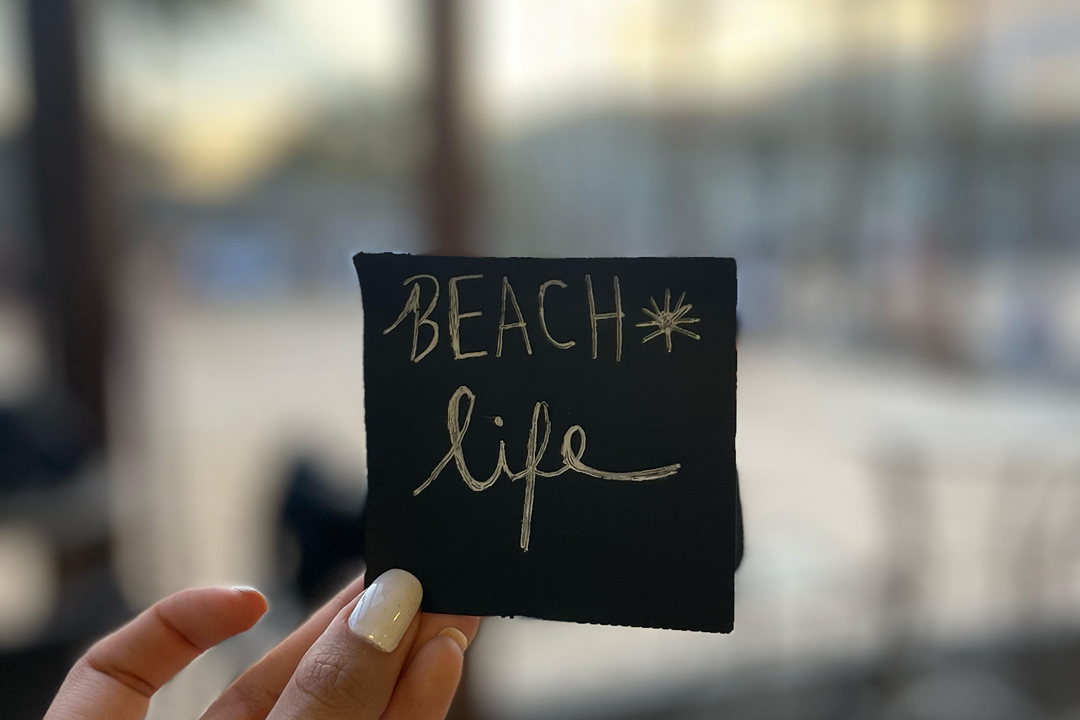 BEACH*
life